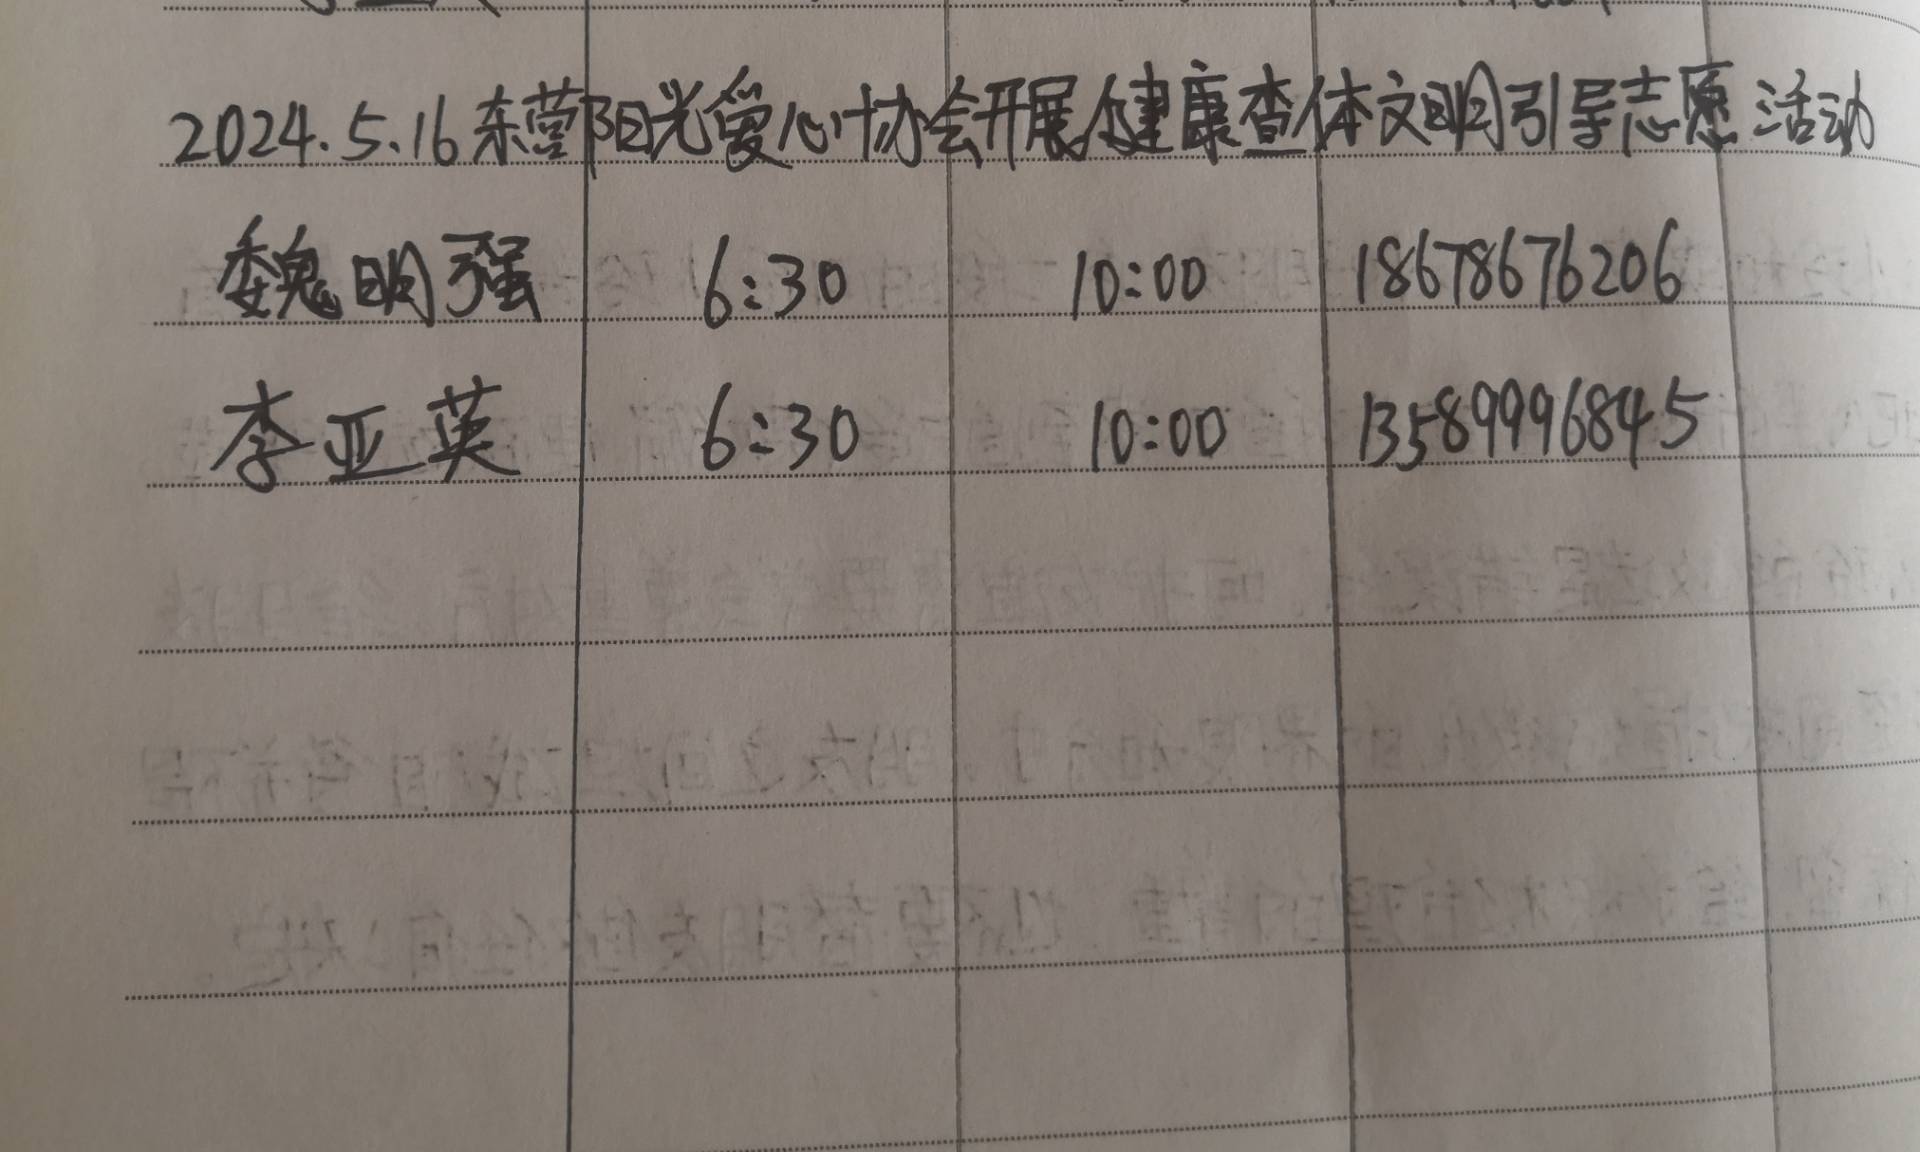 2024.5.16东营阳光爱心协会开展健康查体文明引导志愿活动
魏明强 6:30 10:00 18678676206
李亚英 6:30 10:00 13589996845